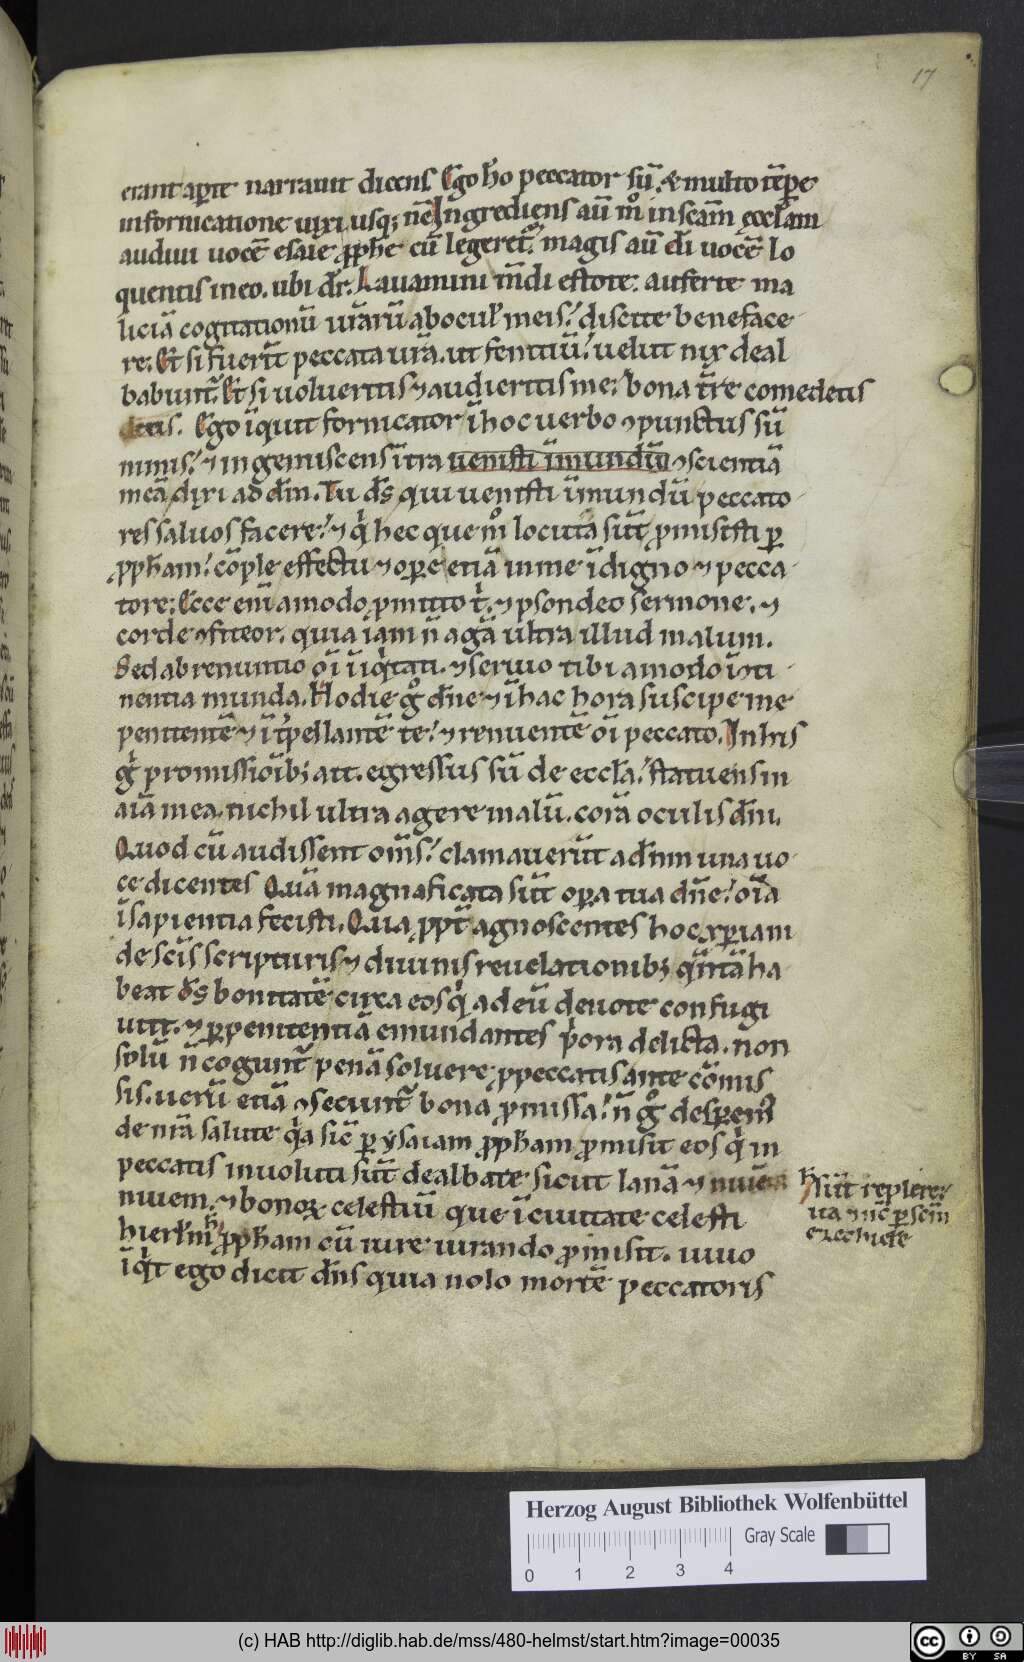 17
erant aꝑte narrauit dicens. Ego hō peccator sū. & multo tēꝑe
in fornicatione uixi usq; nc̄ Ingrediens aū m̊ in scām ecclām
audiui uocē esaie ꝓphe cū legeret̄. magis aū dn̄i uocē lo
quentis in eo. ubi dr̄. Lauamini mūdi estote. auferte ma
liciā cogitationū urārū ab ocul' meis. discite beneface
re. Et si fuerīt peccata urā. ut fenitiū. uelut nix deal
babunt̄. Et si uolueritis ⁊ audieritis me. bona t̄re comedetis
Ego īquit fornicator ī hoc uerbo ꝯpunctus sū
nimis. ⁊ ingemiscens ītra uenisti īmundū ꝯscientiā
meā dixi ad dn̄m. Tu ds̄ qui uenisti īmundū peccato
res saluos facere. ⁊ q̇ hec que m̊ locuta sūt ꝓmisisti ꝑ
ꝓpham. cōple effectu ⁊ oꝑe etiā in me īdigno ⁊ pecca
tore. Ecce enī amodo ꝓmitto t'. ⁊ ꝑsondeo sermone. ⁊
corde ꝯfiteor. quia iam n̄ agā ultra illud malum.
Sed abrenuntio oī īiq'tati. ⁊ seruio tibi amodo ī ꝯti
nentia munda. Hodie g̊ dn̄e ⁊ ī hac hora suscipe me
penitentē ⁊ īt'pellantē te. ⁊ renuentē oī peccato. In his
g' promissioīb; att. egressus sū de eccla. statuens in
aīa mea. nichil ultra agere malū. corā oculis dn̄i.
Quod cū audissent om̄s. clamauerūt ad dn̄m una uo
ce dicentes Quā magnificata sūt oꝑa tua dn̄e. oīa
ī sapientia fecisti. Quia ꝓpt̄ agnoscentes hoc xꝑiani
de scīs scripturis ⁊ diuinis reuelationib; q̄ntā ha
beat ds̄ bonitatē circa eos q' ad eū deuote confugi
unt. ⁊ ꝑ penitentiā emundantes p'ora delicta. non
solū n̄ cogunt̄ penā soluere ꝓ peccatis ante cōmis
sis. uerū etiā ꝯsecunt̄ bona ꝓmissa. n̄ g̊ desꝑem'
de nrā salute q'a sic̄ ꝑ ysaiam ꝓpham ꝓmisit eos q' in
peccatis inuoluti sūt dealbate sicut lanā ⁊
niuem. ⁊ bonoꝝ celestiū que ī ciuitate celesti
hierl'm ꝓpham cū iure iurando ꝓmisit. uiuo
īq't ego dicit dn̄s quia nolo mortē peccatoris
h sūt replere.
ita ⁊ nc̄ ꝑ scm̄
ezechiele
Herzog August Bibliothek Wolfenbüttel
Gray Scale
0 1 2 3 4
(c) HAB http://diglib.hab.de/mss/480-helmst/start.htm?image=00035
cc BY SA